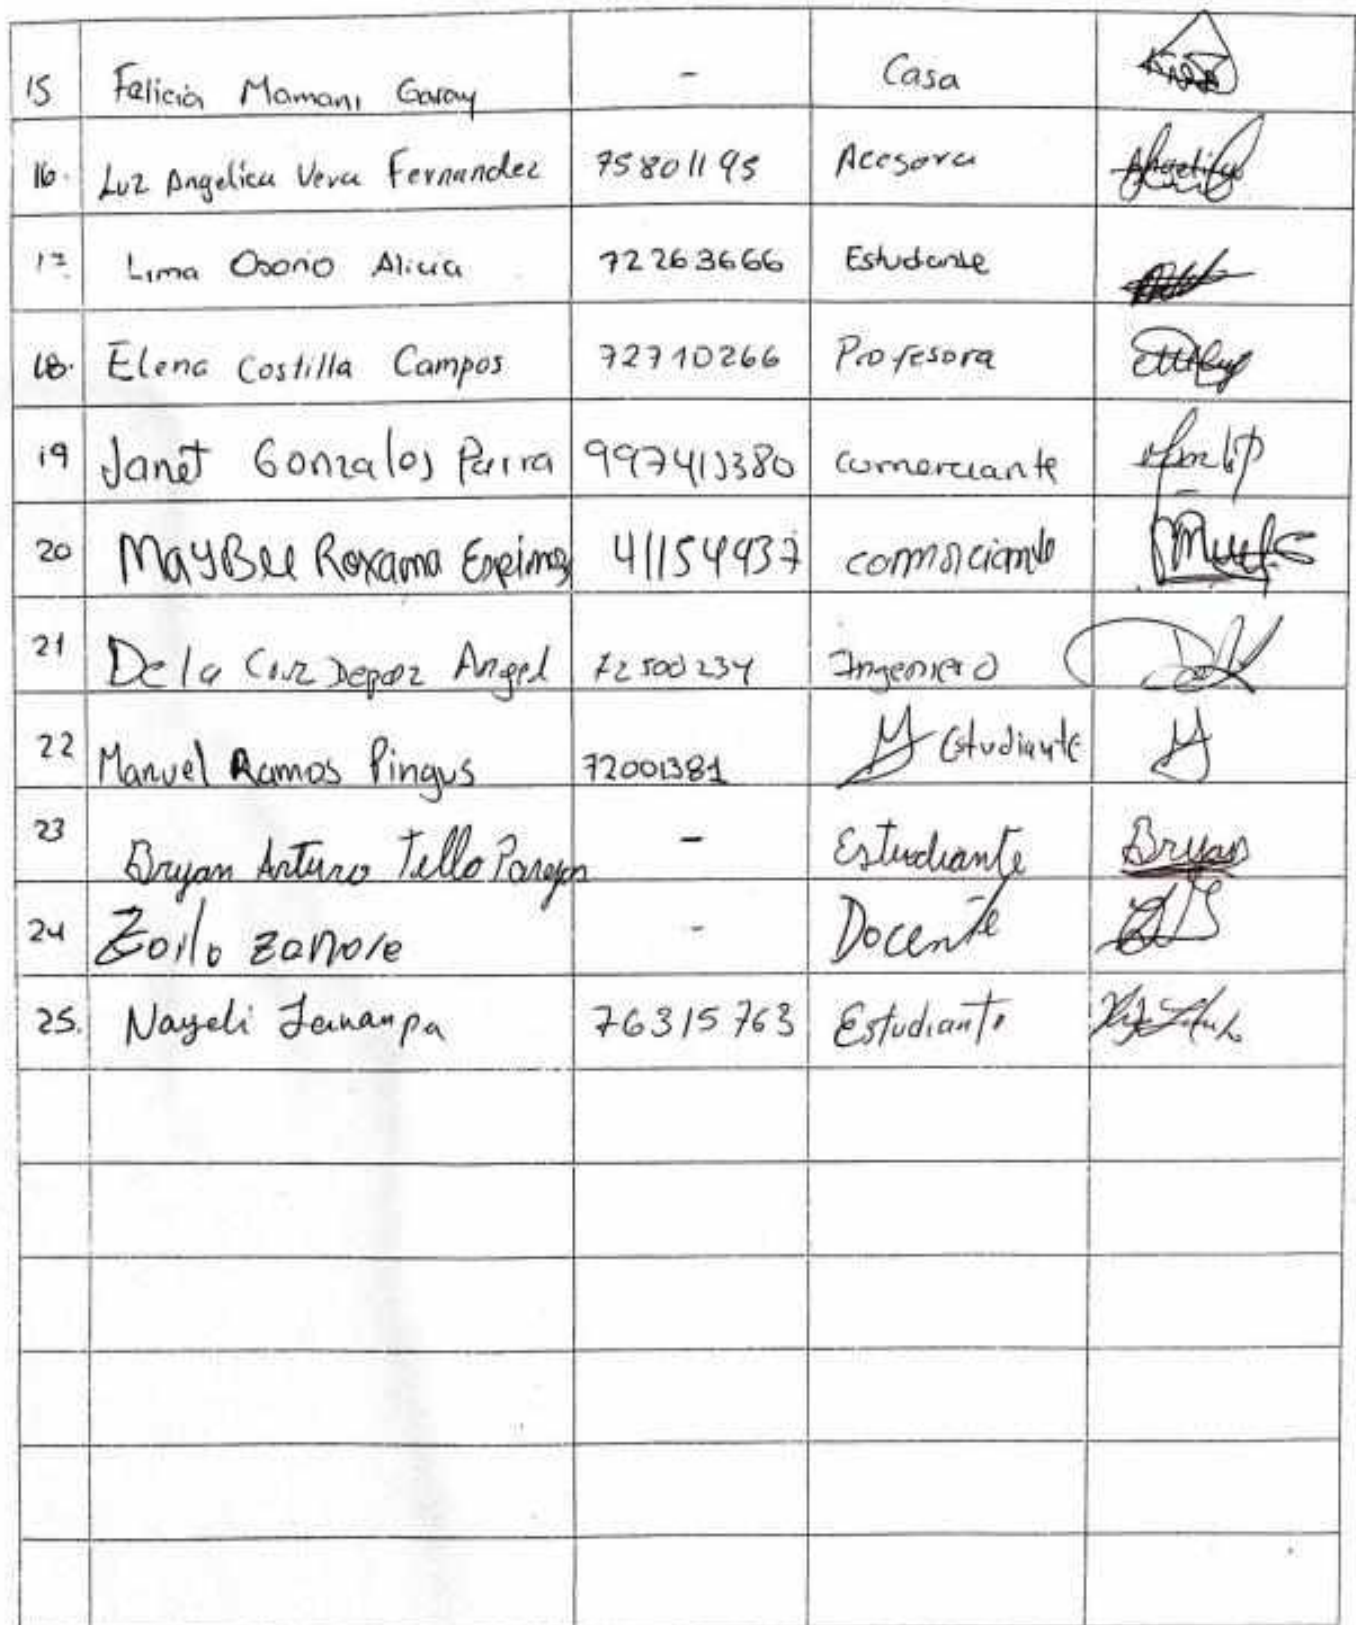 15 Felicia Mamani Garay - Casa
16. Luz Angelica Vera Fernandez 75801195 Acesora Angelica
17 Lima Osorio Alicia 72263666 Estudiante
18. Elena Costilla Campos 72710266 Profesora
19 Janet Gonzalos Parra 997413380 comerciante
20 MayBee Roxama Espinoz 41154937 comerciante
21 De la Cruz Depaz Angel 72500234 Ingeniero
22 Manuel Ramos Pingus 72001381 Estudiante
23 Bryan Arturo Tello Parejas - Estudiante Bryan
24 Zoilo - Docente
25. Nayeli 76315763 Estudiante